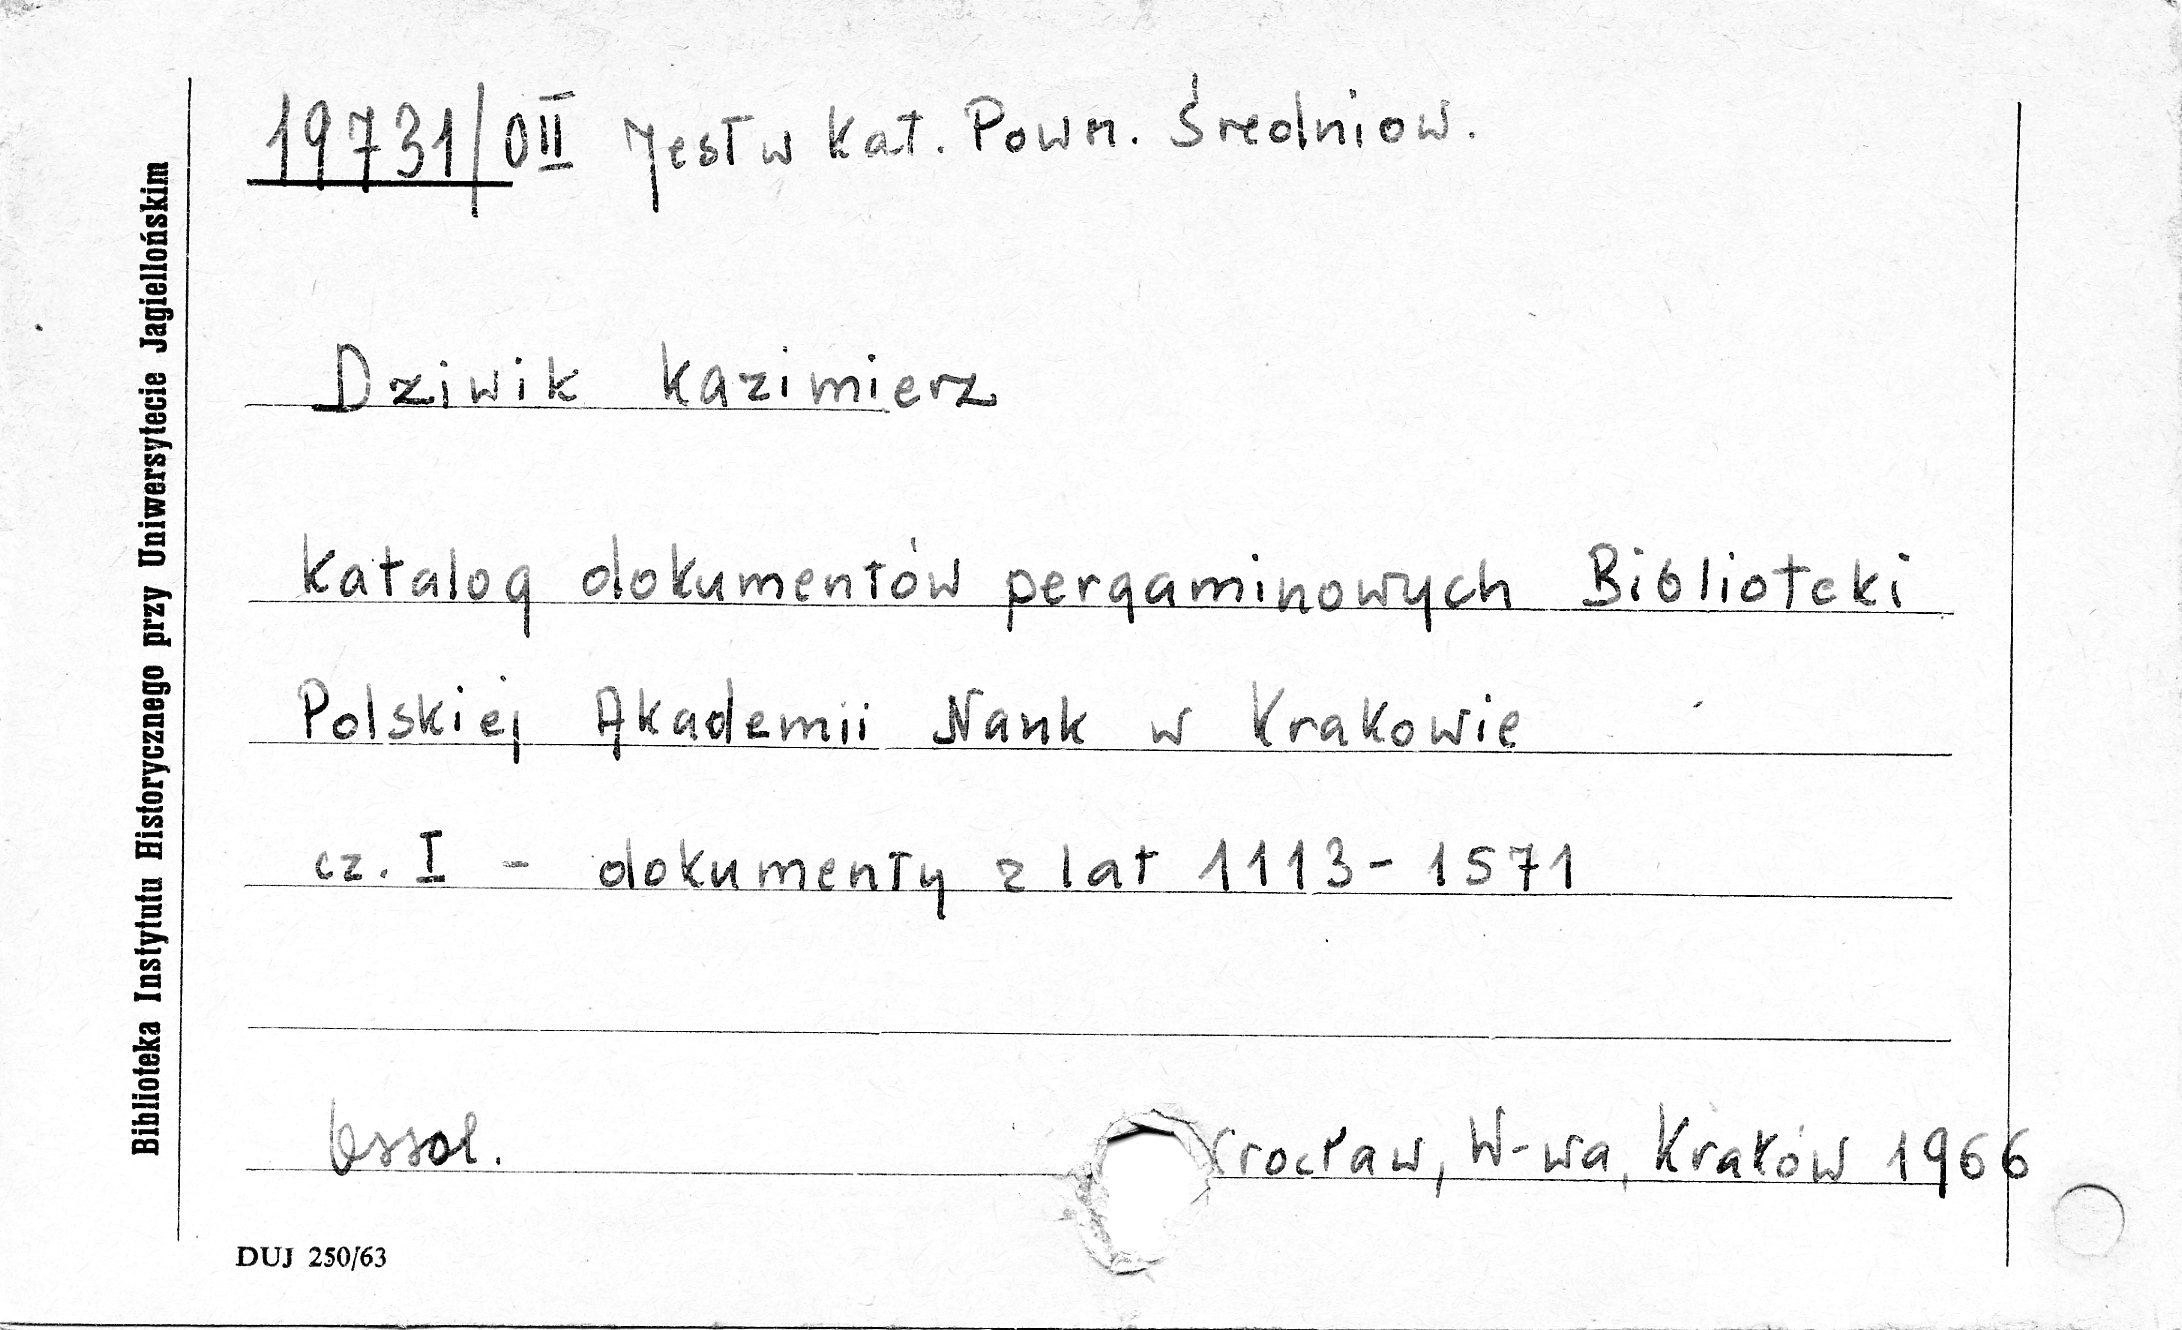 19731/OII Jest w kat. Powm. Średniow.
Dziwik Kazimierz
Katalog dokumentów pergaminowych Biblioteki
Polskiej Akademii Nauk w Krakowie
cz. I - dokumenty z lat 1113-1571
Ossol. rocław, W-wa, Kraków 1966
DUJ 250/63
Biblioteka Instytutu Historycznego przy Uniwersytecie Jagiellońskim